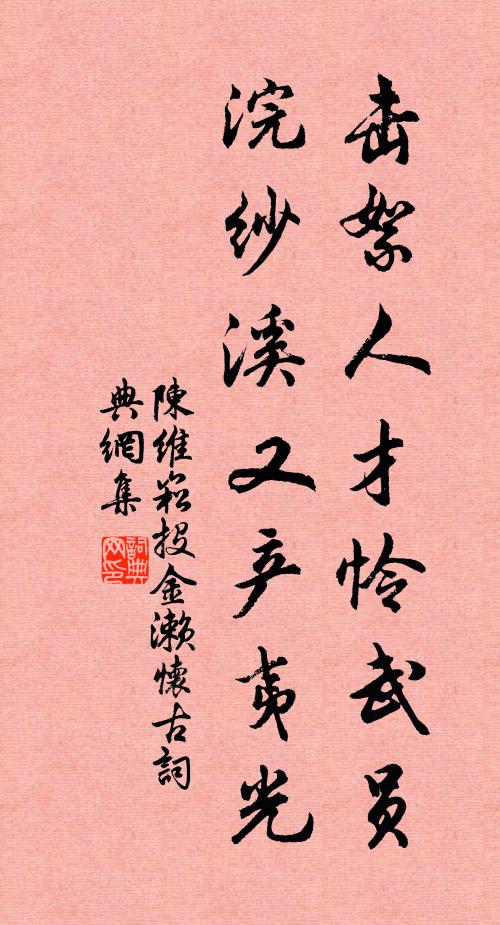 击絮人才怜武员
浣纱溪又产夷光
陳維崧投金瀨懷古詞
典網集
詞典
网印